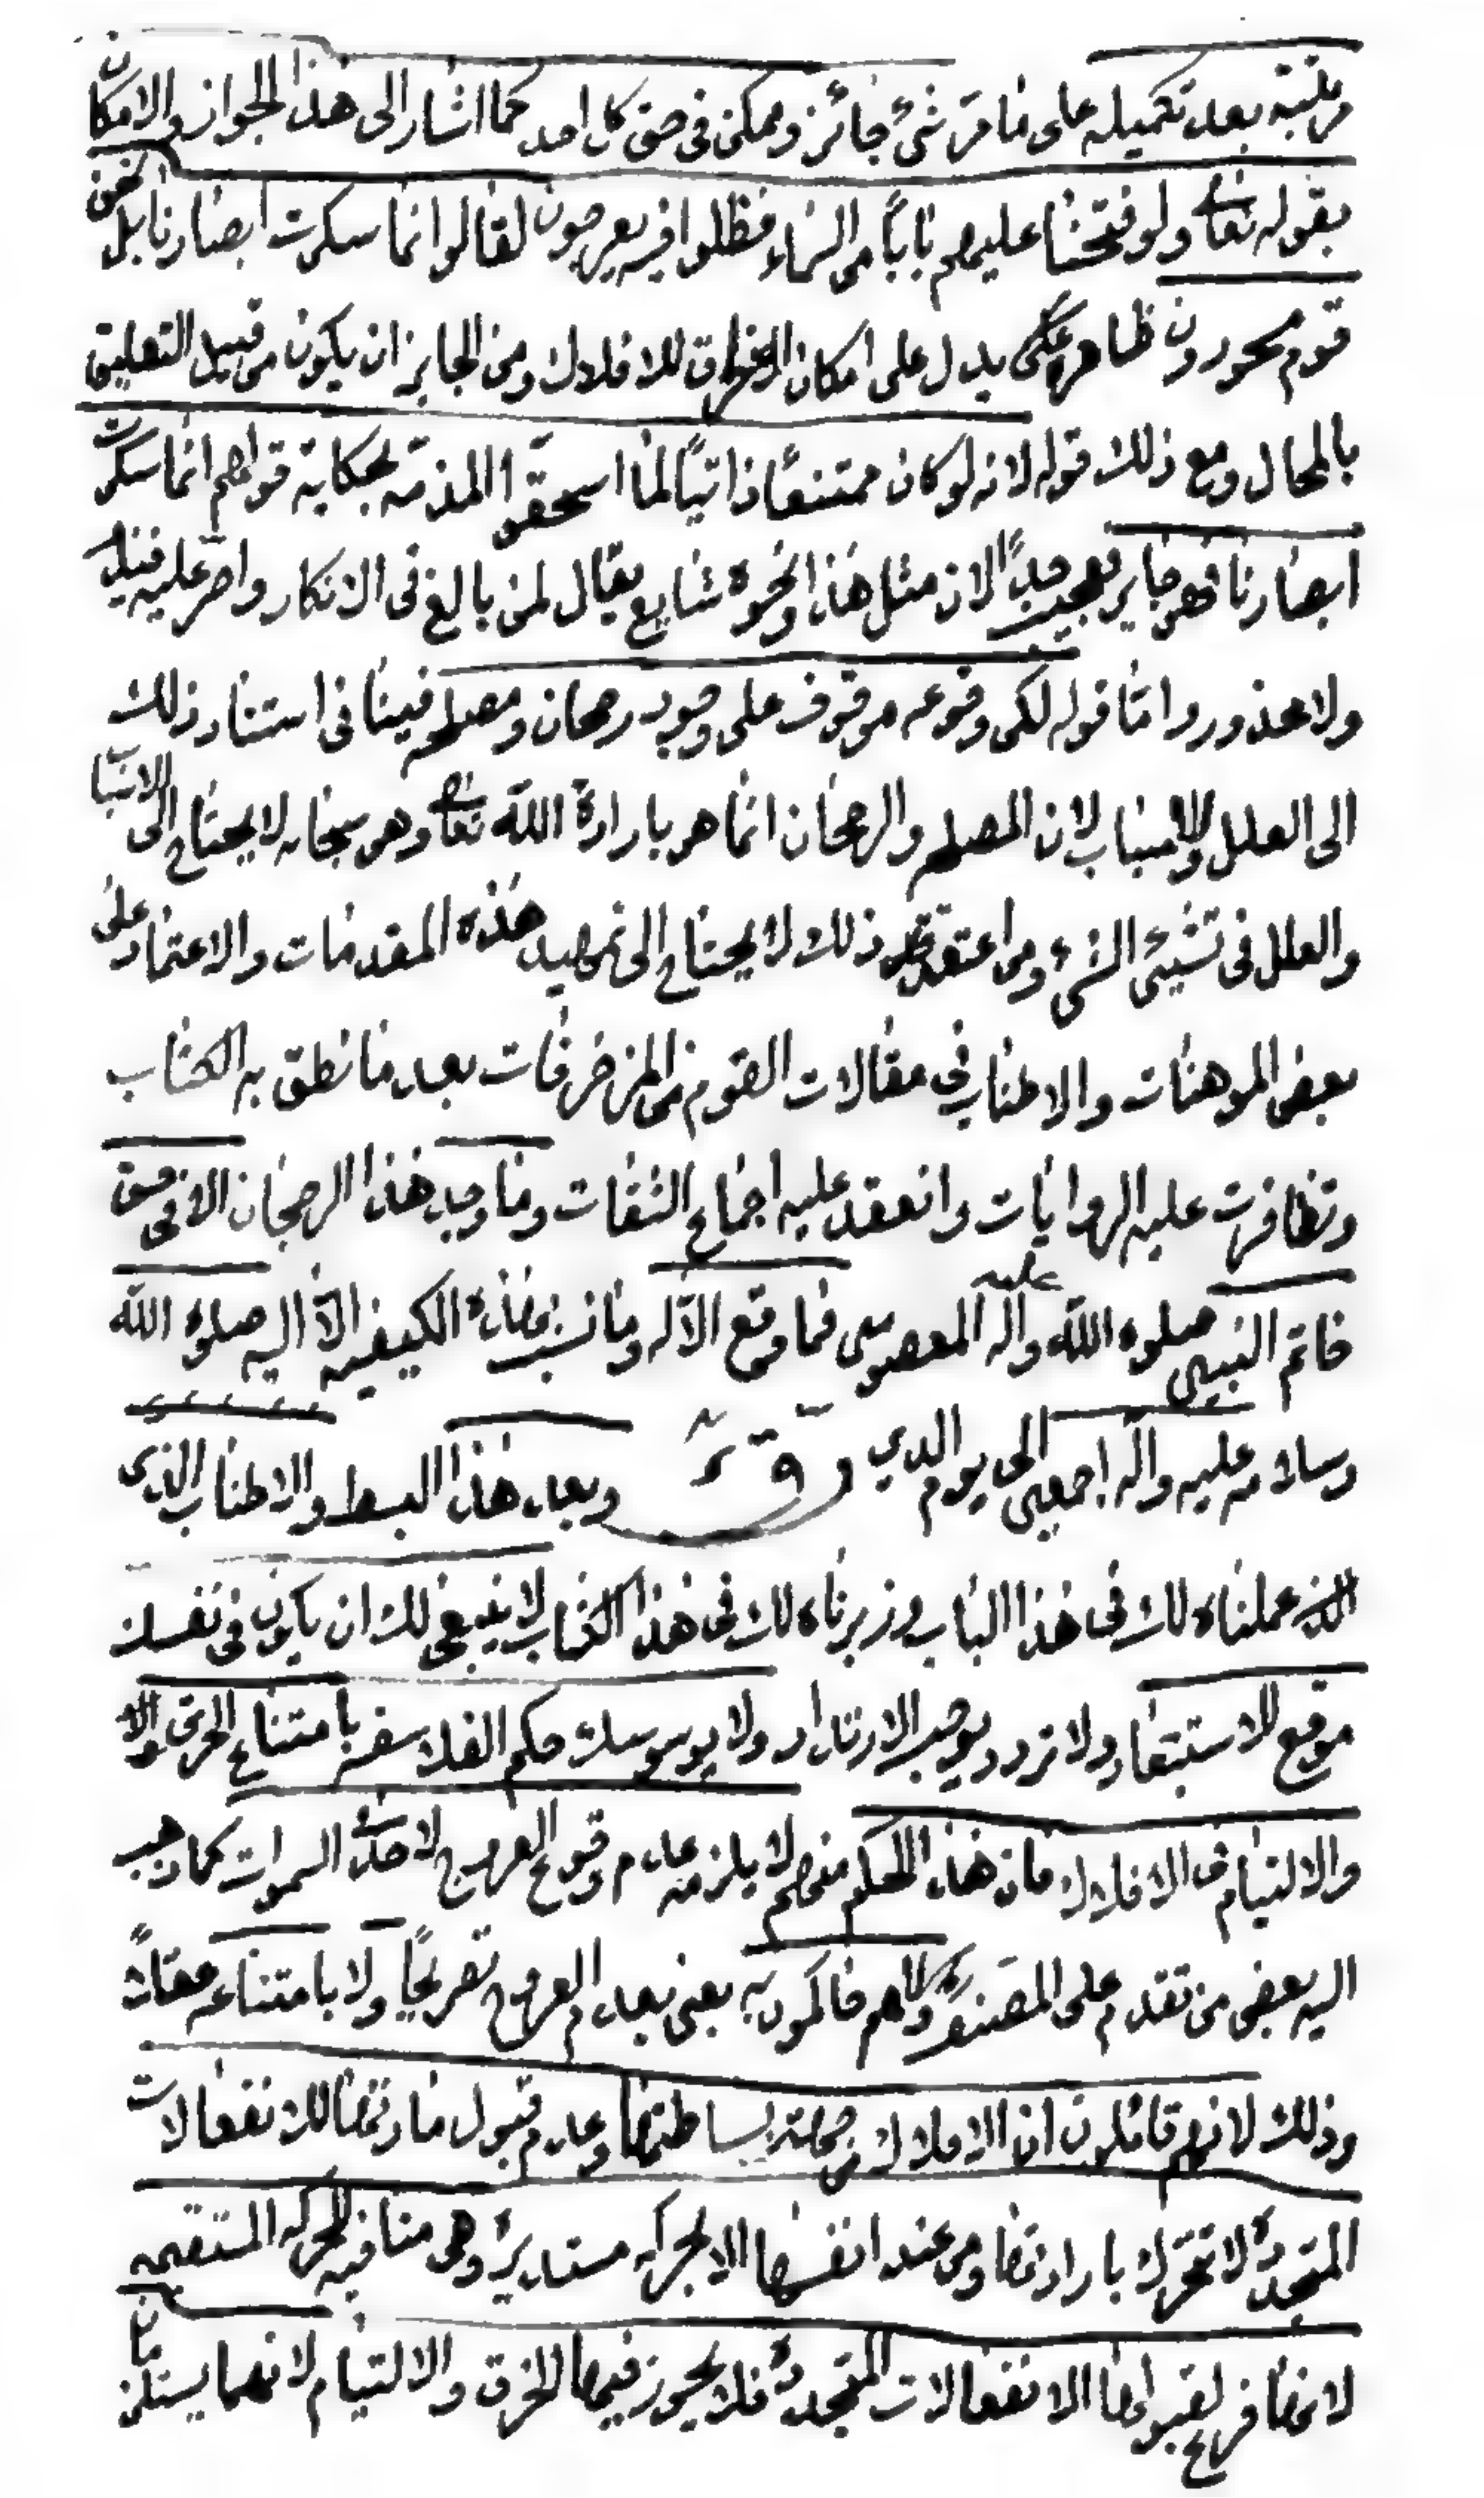 مرتبة بعد تكميله على ما مرّ شيء جائز وممكن في حق كل احد كما اشار الى هذا الجواز والامكان
بقوله تعالى ولو فتحنا عليهم بابًا من السماء فظلوا فيه يعرجون لقالوا انما سكرت ابصارنا بل نحن
قوم مسحورون ظاهره يدل على امكان الخرق للافلاك ومن الجايز ان يكون من قبيل التعليق
بالمحال ومع ذلك قوله لانه لو كان ممتنعًا ذاتيًا لما استحقوا المذمة بحكاية قولهم انما سكرت
ابصارنا فهو جايز عجيب جدًا لان مثل هذا ونحوه شايع يقال لمن بالغ في الانكار واصر عليه
ولا محذور واما قوله لكن وقوعه موقوف على وجود رجحان ومصلحه فينافي استناد ذلك
الى العلل والاسباب لان المصلحه والرجحان انما هو بارادة الله تعالى وهو سبحانه لا يحتاج الى الاسباب
والعلل في تشيىء الشيء ومن اعتقد ذلك لا يحتاج الى تمهيد هذه المقدمات والاعتماد على
بعض الموهنات والاطناب في مقالات القوم من المزخرفات بعد ما نطق به الكتاب
وتظافرت عليه الروايات وانعقد عليه اجماع الثقات وما وجد هذا الرجحان الا في حق
خاتم النبيين صلوة الله عليه وآله المعصومين فما وقع الا له وما نسب بهذه الكيفيه الا اليه صلوة الله
وسلامه عليه وآله اجمعين الى يوم الدين وبعد هذا البسط والاطناب الذي
عملناه لك في هذا الباب وزبرناه لك في هذا الكتاب لا ينبغي لك ان يكون في نفسك
موقع للاستبعاد ولا تردد يوجب الارتداد ولا يوسوسك حكم الفلاسفه بامتناع الخرق
والالتيام في الافلاك فان هذا الحكم منهم لا يلزمه عدم وقوع العروج لاحد الى السموات كما ذهب
اليه بعض من تقدم على المصنف وكلهم حاكمون به يعني بعدم العروج تصريحًا ولا بامتناعه عقلاً
وذلك لانهم قائلون ان الافلاك من جهة بساطتها وعدم قبول مادتها للانفعالات
المتجددة لا تتحرك بارادتها ومن عند انفسها الا بحركه مستديرة وهى منافيه للحركه المستقيمه
لانها فرع لقبولها الانفعالات المتجددة فلا يجوز فيها الخرق والالتيام لانهما يستلزمان